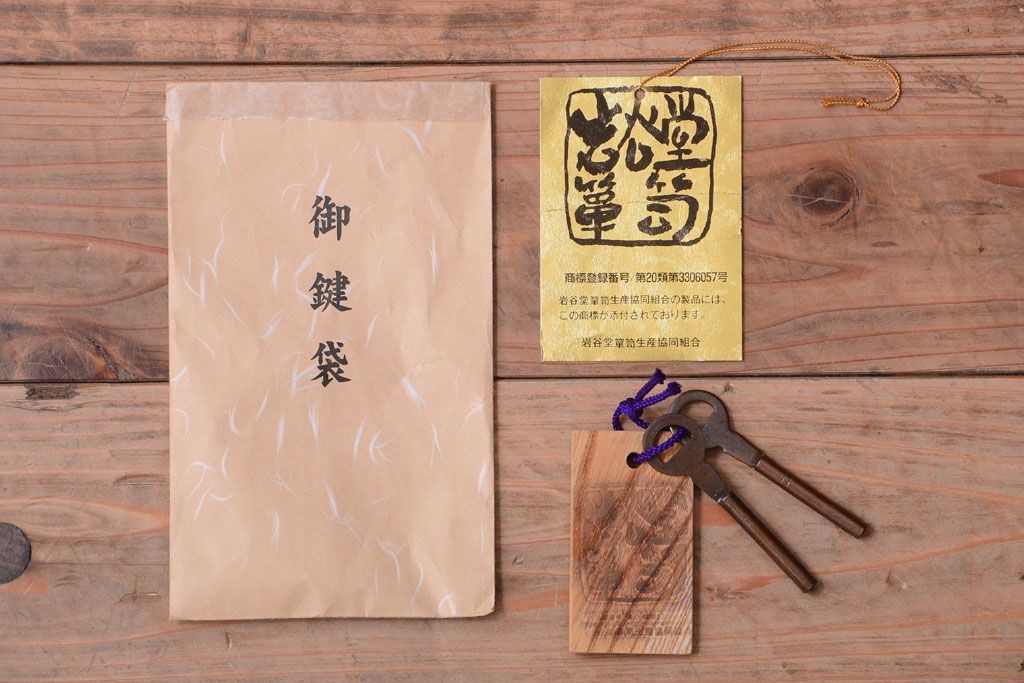 御鍵袋
岩谷堂
箪笥
商標登録番号/第20類第3306057号
岩谷堂箪笥生産協同組合の製品には、
この商標が添付されております。
岩谷堂箪笥生産協同組合